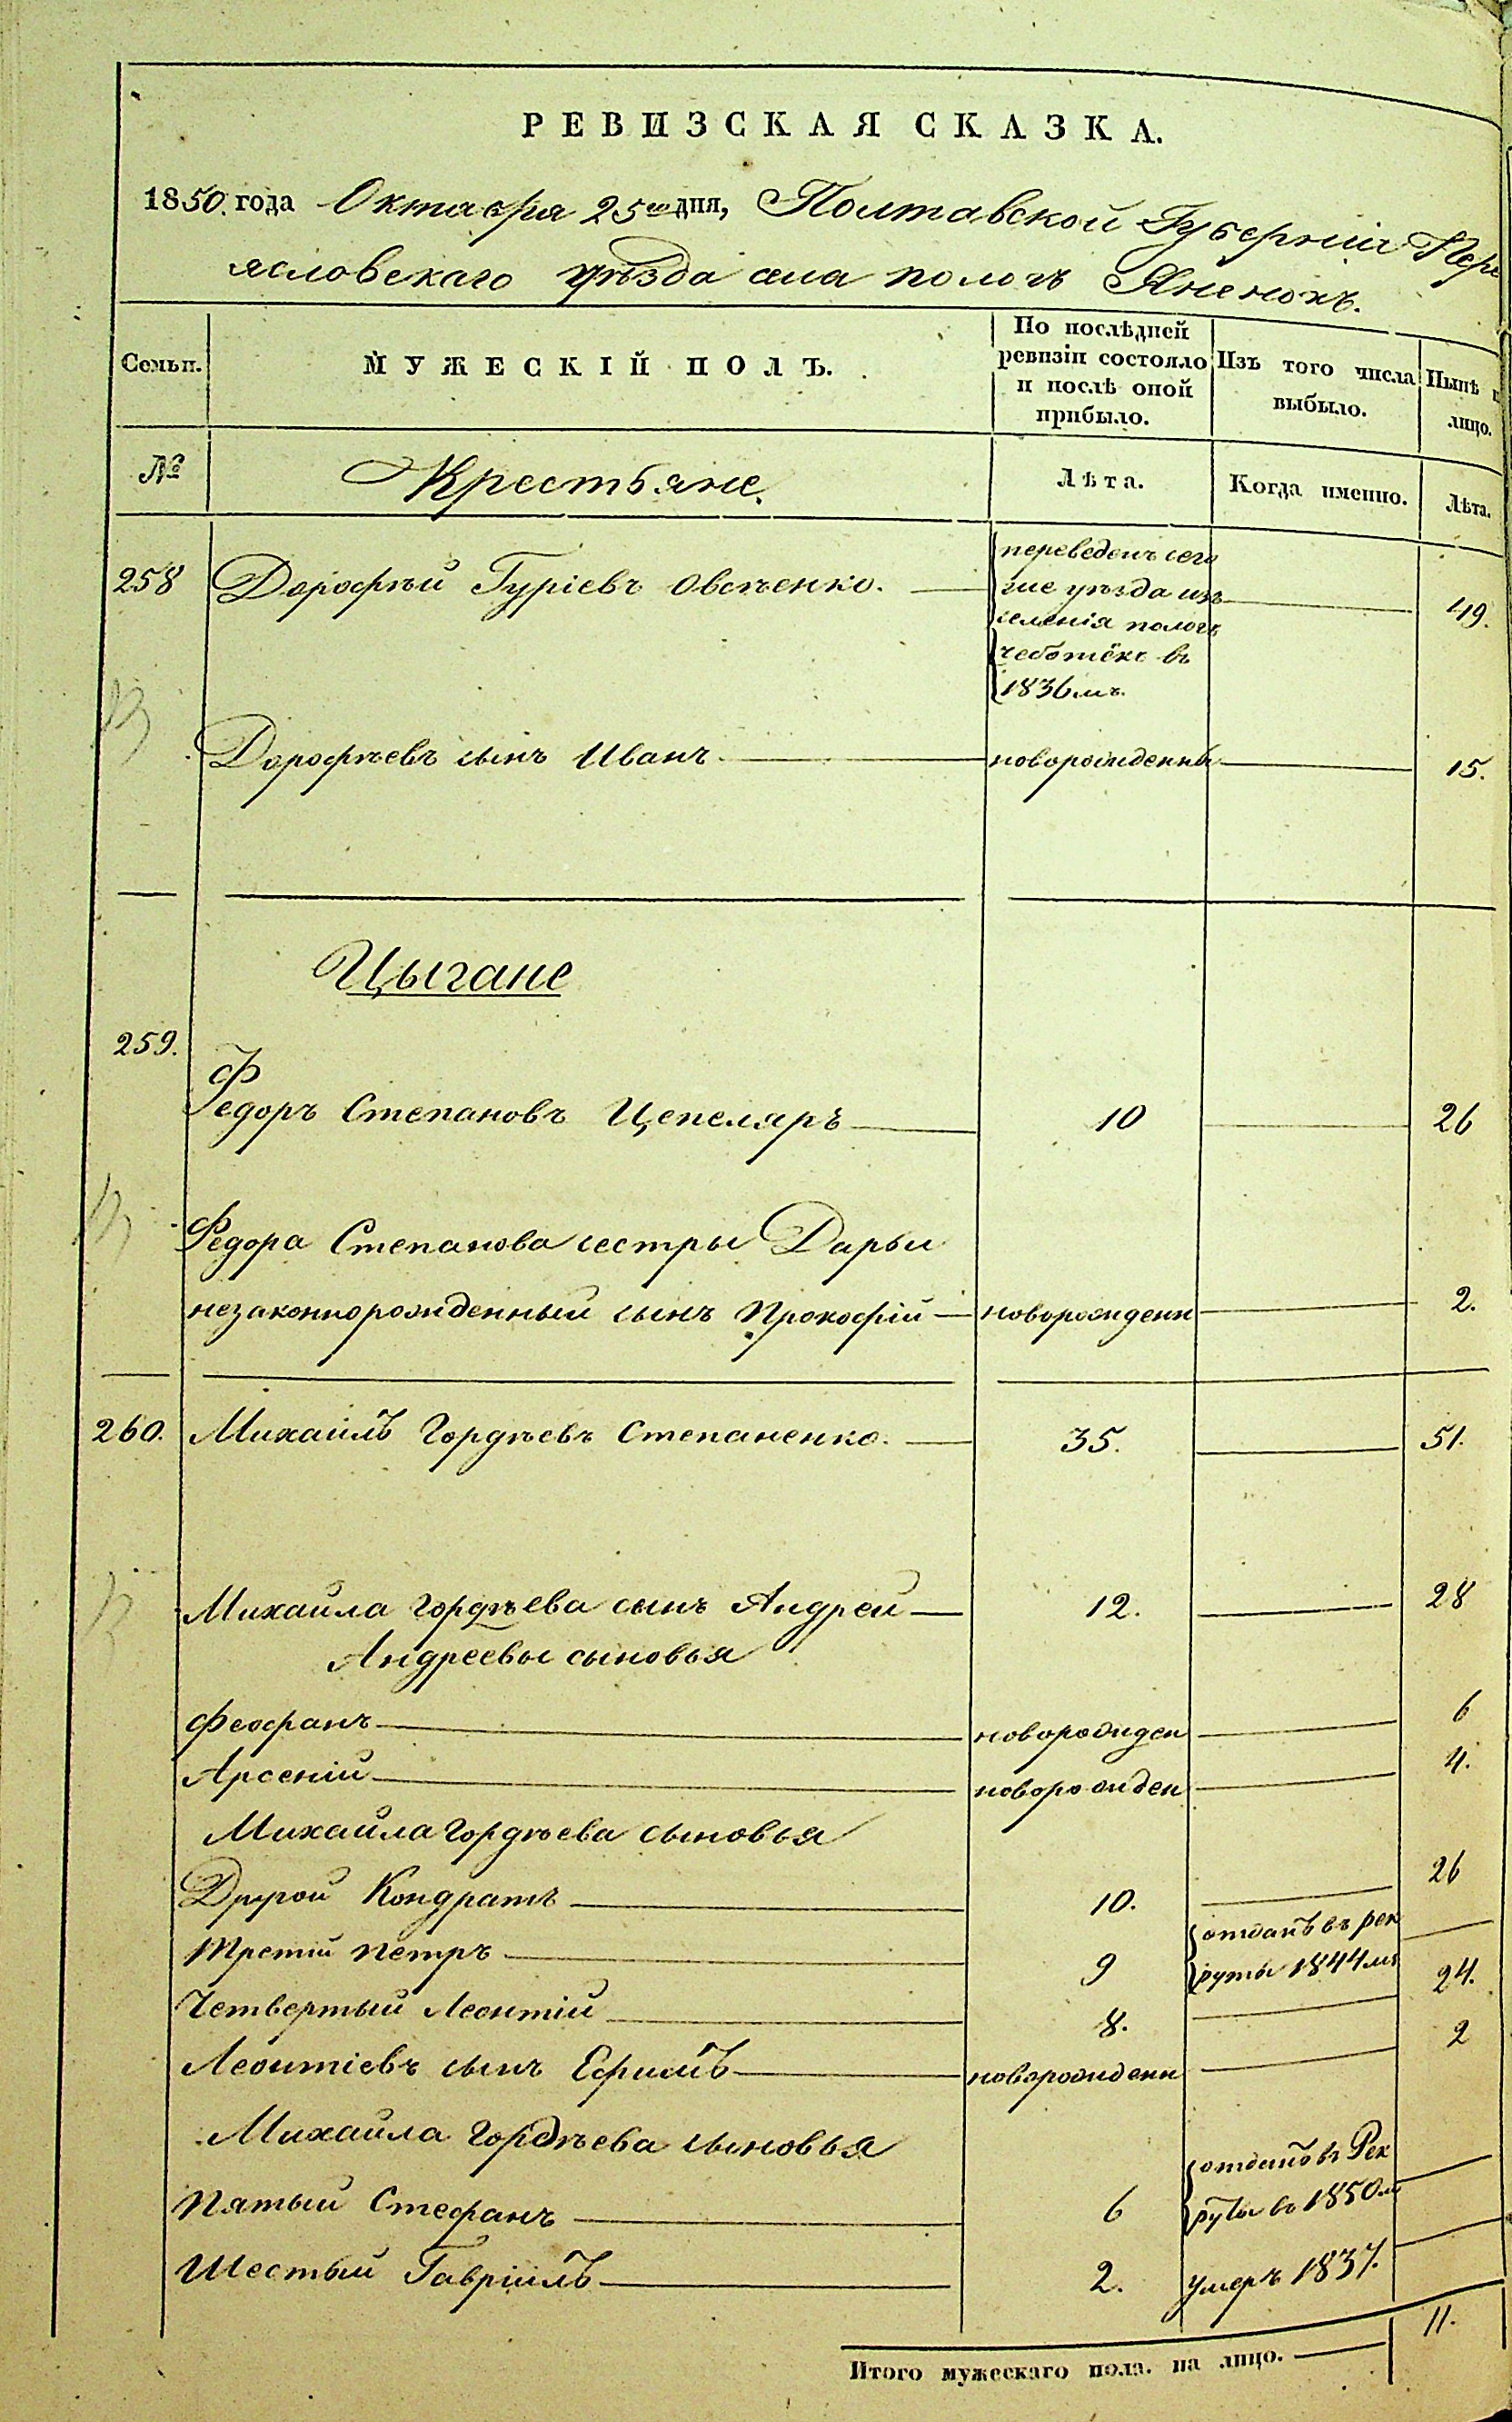 РЕВИЗСКАЯ СКАЗКА.
1850. года Октября 25го дня, Полтавской Губерніи Пере
яславскаго уѣзда села пологъ Яненокъ.
Семьи.
МУЖЕСКІЙ ПОЛЪ.
По послѣдней
ревизіи состояло
и послѣ оной
прибыло.
Изъ того числа
выбыло.
Нынѣ н
лицо.
№
Крестьяне.
Лѣта.
Когда именно.
Лѣта.
258 Дорофѣй Гуріевъ Овсѣенко.
переведенъ сего
же уѣзда изъ
селенія пологъ
чеботёкъ въ
1836мъ.
49.
Дорофѣевъ сынъ Иванъ новорожденны 15.
Цыгане
259.
Ф
Федоръ Степановъ Цепеляръ 10 26
Федора Степанова сестры Дарьи
незаконнорожденный сынъ Прокофій новорожденн 2.
260. Михаилъ Гордѣевъ Степаненко. 35. 51.
Михайла Гордѣева сынъ Андрей 12. 28
Андреевы сыновья
Феофанъ новорожден 6
Арсеній новорожден 4.
Михайла Гордѣева сыновья
Другой Кондратъ 10. 26
Третій Петръ 9
отданъ въ рек
руты 1844мъ
Четвертый Леонтій 8. 24.
Леонтіевъ сынъ Ефимъ новорожденн 2
Михайла Гордѣева сыновья
Пятый Стефанъ 6
отданъ въ Рек
руты въ 1850м
Шестый Гавріилъ 2. умеръ 1837.
Итого мужескаго пола. на лицо. 11.